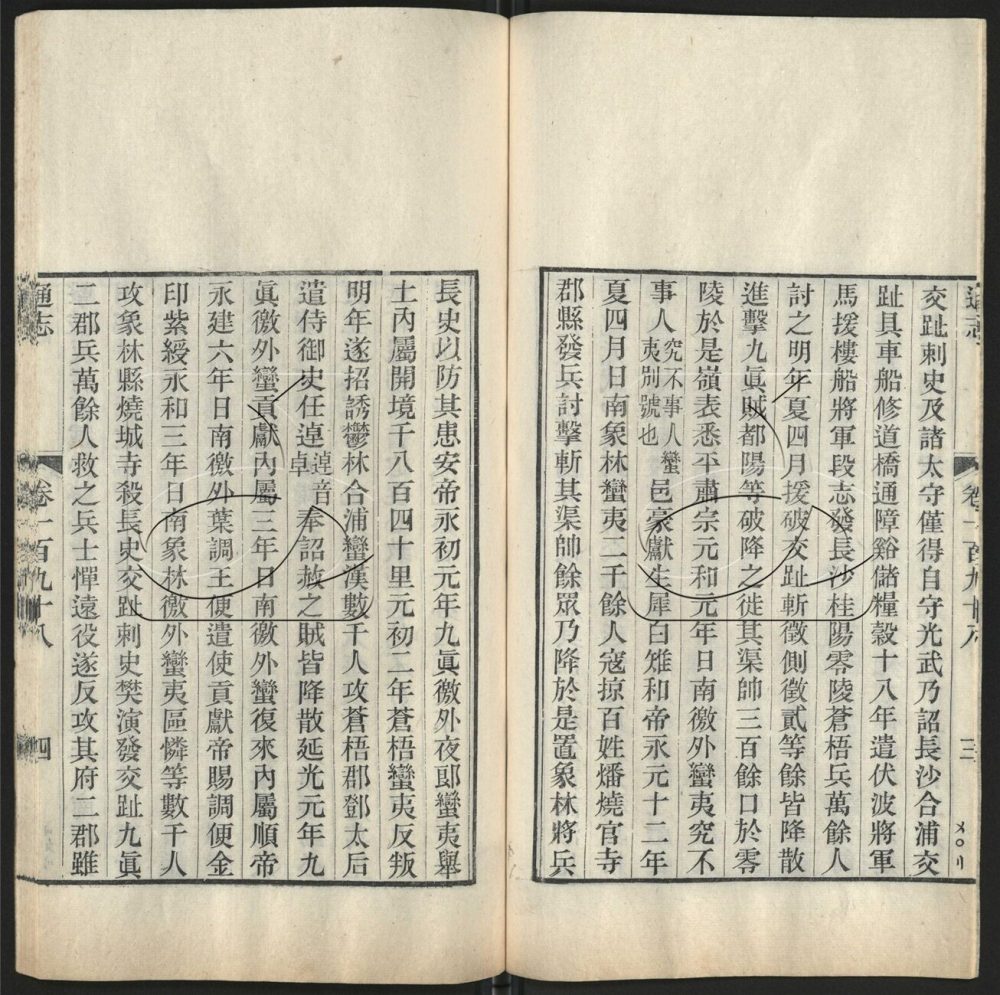 交趾刺史及諸太守僅得自守光武乃詔長沙合浦交
趾具車船修道橋通障谿儲糧穀十八年遣伏波將軍
馬援樓船將軍段志發長沙桂陽零陵蒼梧兵萬餘人
討之明年夏四月援破交趾斬徵側徵貳等餘皆降散
進擊九眞賊都陽等破降之徙其渠帥三百餘口於零
陵於是嶺表悉平肅宗元和元年日南徼外蠻夷究不
事人究不事人蠻夷別號也邑豪獻生犀白雉和帝永元十二年
夏四月日南象林蠻夷二千餘人寇掠百姓燔燒官寺
郡縣發兵討擊斬其渠帥餘眾乃降於是置象林將兵
長史以防其患安帝永初元年九眞徼外夜郞蠻夷舉
土內屬開境千八百四十里元初二年蒼梧蠻夷反叛
明年遂招誘鬱林合浦蠻漢數千人攻蒼梧郡鄧太后
遣侍御史任逴逴音卓奉詔赦之賊皆降散延光元年九
眞徼外蠻貢獻內屬三年日南徼外蠻復來內屬順帝
永建六年日南徼外葉調王便遣使貢獻帝賜調便金
印紫綬永和三年日南象林徼外蠻夷區憐等數千人
攻象林縣燒城寺殺長史交趾刺史樊演發交趾九眞
二郡兵萬餘人救之兵士憚遠役遂反攻其府二郡雖
通志 卷一百九十八 四